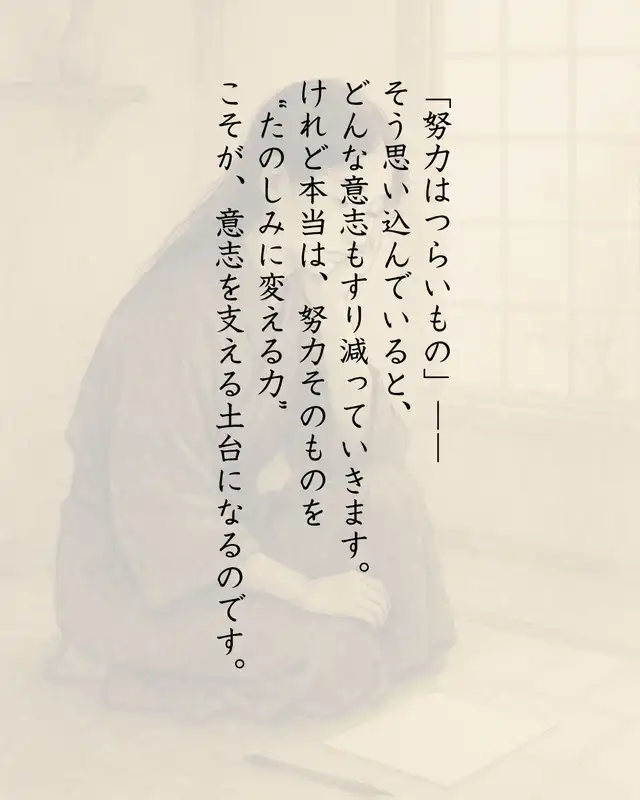 「努力はつらいもの」――
そう思い込んでいると、
どんな意志もすり減っていきます。
けれど本当は、努力そのものを
〝たのしみに変える力〟
こそが、意志を支える土台になるのです。